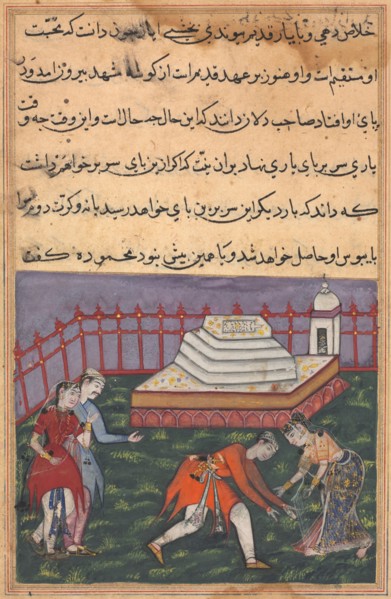 خلاص دهی و با یار قدیم پیوندی بخشی ایاز چون دانست که محبت
او مستقیم است و او هنوز بر عهد قدیم است از گوشه شهد بیرون آمد و در
پای او افتاد صاحب دلان دانند که این حال چه حال است و این وقت چه وقت
یاری سر بر پای یاری نهاد بران نیت که اگر ازین پای سر برخواهم داشت
که داند که بار دیگر این سر برین پای خواهد رسید یا نه و کرت دوم مرا
پایبوس او حاصل خواهد شد و یا همین بیش نبود محموده گفت